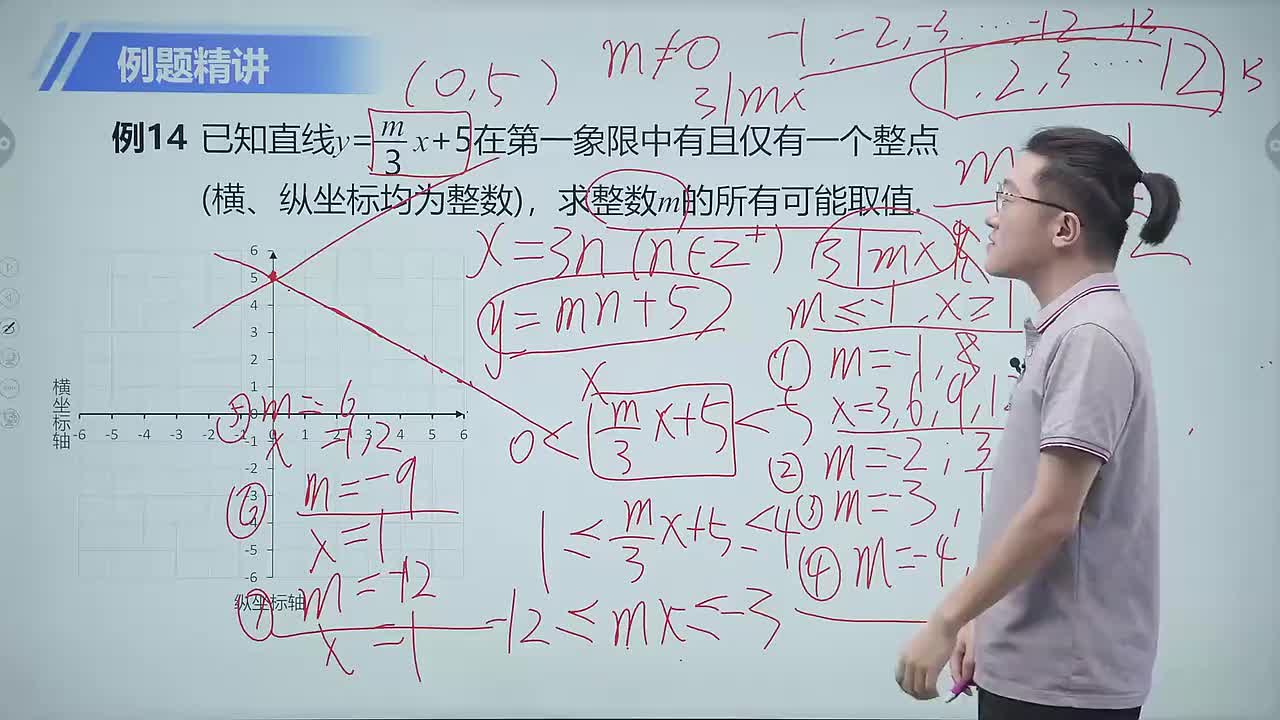 例题精讲
例14 已知直线y=m/3 x+5在第一象限中有且仅有一个整点
(横、纵坐标均为整数)，求整数m的所有可能取值.
(0,5)
m≠0
3|mx
-1,-2,-3…,-12 -13
1,2,3……12
x=3n (n∈Z⁺)
3|mx
y=mn+5
m≤-1,x≥1
① m=-1,
x=3,6,9,1
② m=-2,3
③ m=-3,1
④ m=-4,
x
0<m/3 x+5<5
1≤m/3 x+5≤4
-12≤mx≤-3
⑤ m=-6
m=-9
x=1
⑦ m=-12
x=1
6
5
4
3
2
1
0
-1
-2
-3
-5
-6
-6 -5 -4 -3 -2 -1 4 5 6
横坐标轴
纵坐标轴